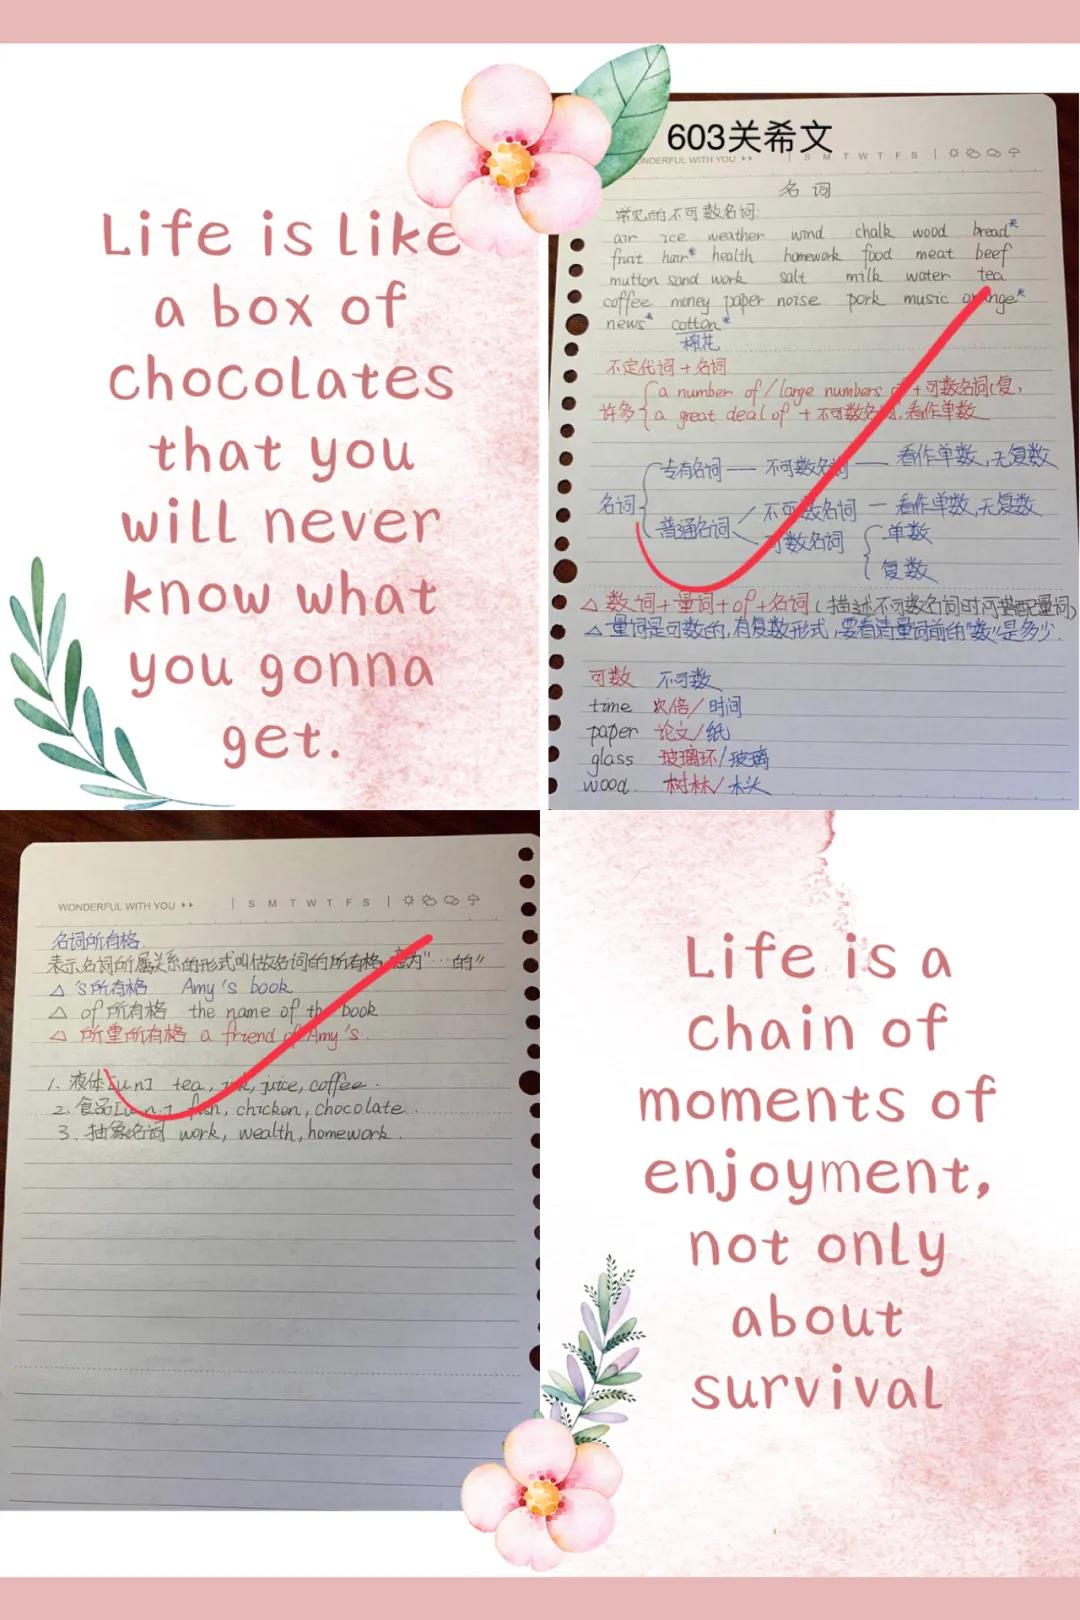 Life is like
a box of
chocolates
that you
will never
know what
you gonna
get.
603关希文
WONDERFUL WITH YOU S M T W T F S
名词
常见的不可数名词:
air ice weather wind chalk wood bread*
fruit hair* health homework food meat beef
mutton sand work salt milk water tea
coffee money paper noise pork music orange*
news* cotton*
棉花
不定代词+名词
许多
a number of/large numbers of+可数名词(复,
a great deal of+不可数名词,看作单数
名词
专有名词—不可数名词—看作单数,无复数
普通名词
不可数名词—看作单数,无复数
可数名词
单数
复数
△数词+量词+of+名词(描述不可数名词时可搭配量词)
△量词是可数的,有复数形式,要看清量词前的"数"是多少.
可数 不可数
time 次倍/时间
paper 论文/纸
glass 玻璃环/玻璃
wood 树林/木头
WONDERFUL WITH YOU S M T W T F S
名词所有格
表示名词所属关系的形式叫做名词的所有格,意为"…的"
△'s所有格 Amy's book
△of所有格 the name of the book
△所重所有格 a friend of Amy's.
1.液体[un] tea,ink,juice,coffee.
2.食品[un.] fish,chicken,chocolate.
3.抽象名词 work,wealth,homework.
Life is a
chain of
moments of
enjoyment,
not only
about
survival